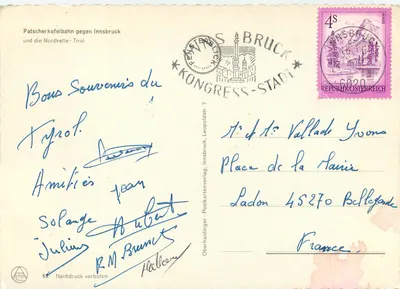 Patscherkofelbahn gegen Innsbruck
und die Nordkette - Tirol
Bons Souvenirs du
Tyrol.
Amitiés Jean
Solange Aubert
Julien
R.M Brunet
INNSBRUCK
* KONGRESS-STADT *
INNSBRUCK
6020
4 S
REPUBLIK ÖSTERREICH
Mr et Me Vallade Yvons
Place de la Mairie
Ladon 45270 Bellegarde
France
Oberhaidinger - Postkartenverlag, Innsbruck, Leopoldstr. 7
Nachdruck verboten